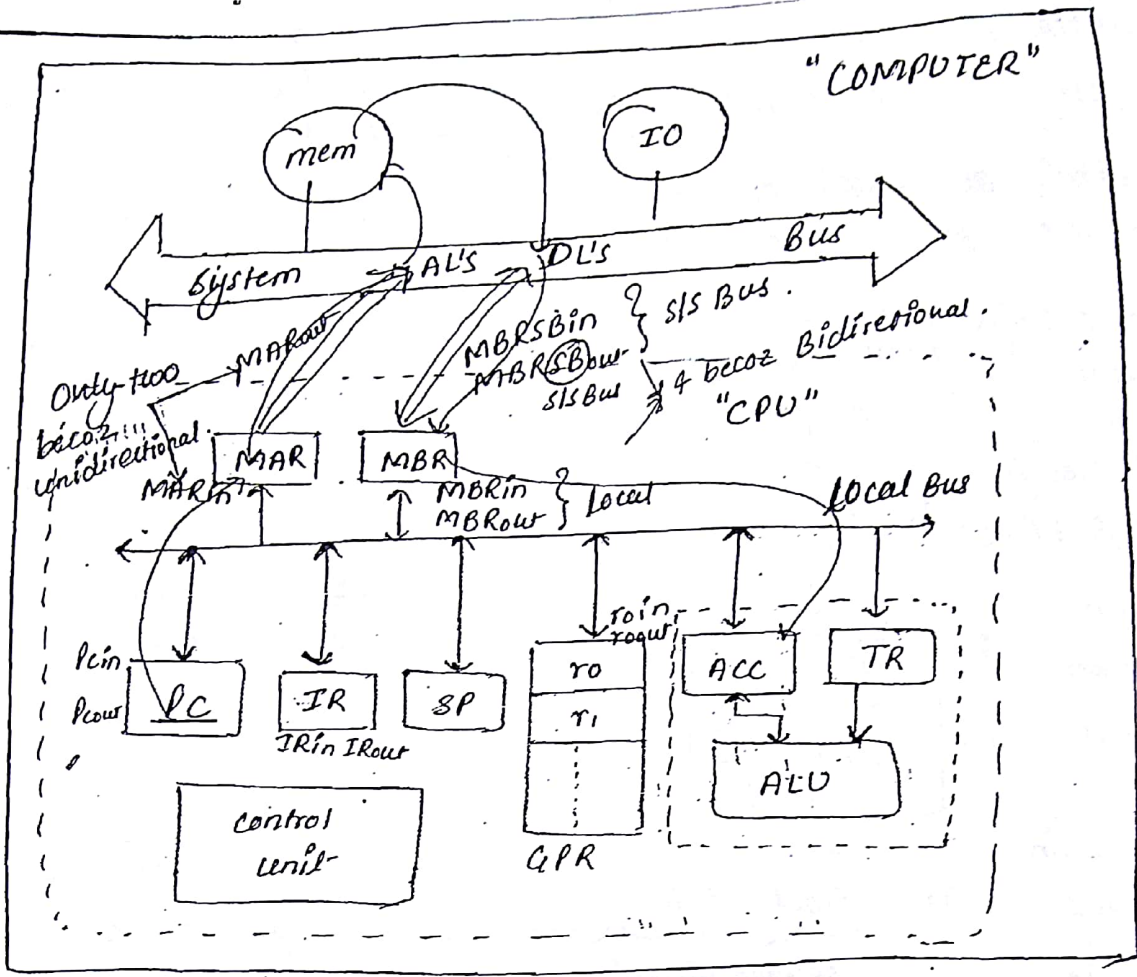 "COMPUTER"
mem
IO
System AL'S DL'S Bus
MARout
MBRSBin
MBRSBout
S/S Bus
} S/S Bus.
4 becoz Bidirectional.
"CPU"
Only two
becoz
unidirectional.
MARin
MAR
MBR
MBRin
MBRout
} Local
Local Bus
Pcin
Pcout
PC
IR
IRin IRout
SP
roin
rout
r0
r1
GPR
ACC
TR
ALU
Control
unit